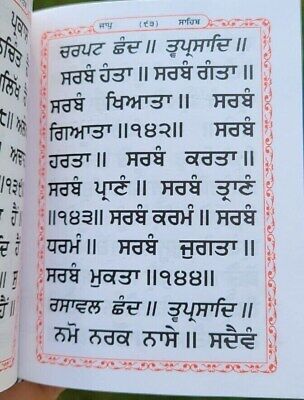 ਜਾਪੁ (੬੩) ਸਾਹਿਬ
ਚਰਪਟ ਛੰਦ॥ ਤ੍ਵਪ੍ਰਸਾਦਿ॥
ਸਰਬੰ ਹੰਤਾ॥ ਸਰਬੰ ਗੰਤਾ॥
ਸਰਬੰ ਖਿਆਤਾ॥ ਸਰਬੰ
ਗਿਆਤਾ॥੧੪੨॥ ਸਰਬੰ
ਹਰਤਾ॥ ਸਰਬੰ ਕਰਤਾ॥
ਸਰਬੰ ਪ੍ਰਾਣੰ॥ ਸਰਬੰ ਤ੍ਰਾਣੰ
॥੧੪੩॥ ਸਰਬੰ ਕਰਮੰ॥ ਸਰਬੰ
ਧਰਮੰ॥ ਸਰਬੰ ਜੁਗਤਾ॥
ਸਰਬੰ ਮੁਕਤਾ॥੧੪੪॥
ਰਸਾਵਲ ਛੰਦ॥ ਤ੍ਵਪ੍ਰਸਾਦਿ॥
ਨਮੋ ਨਰਕ ਨਾਸੇ॥ ਸਦੈਵੰ